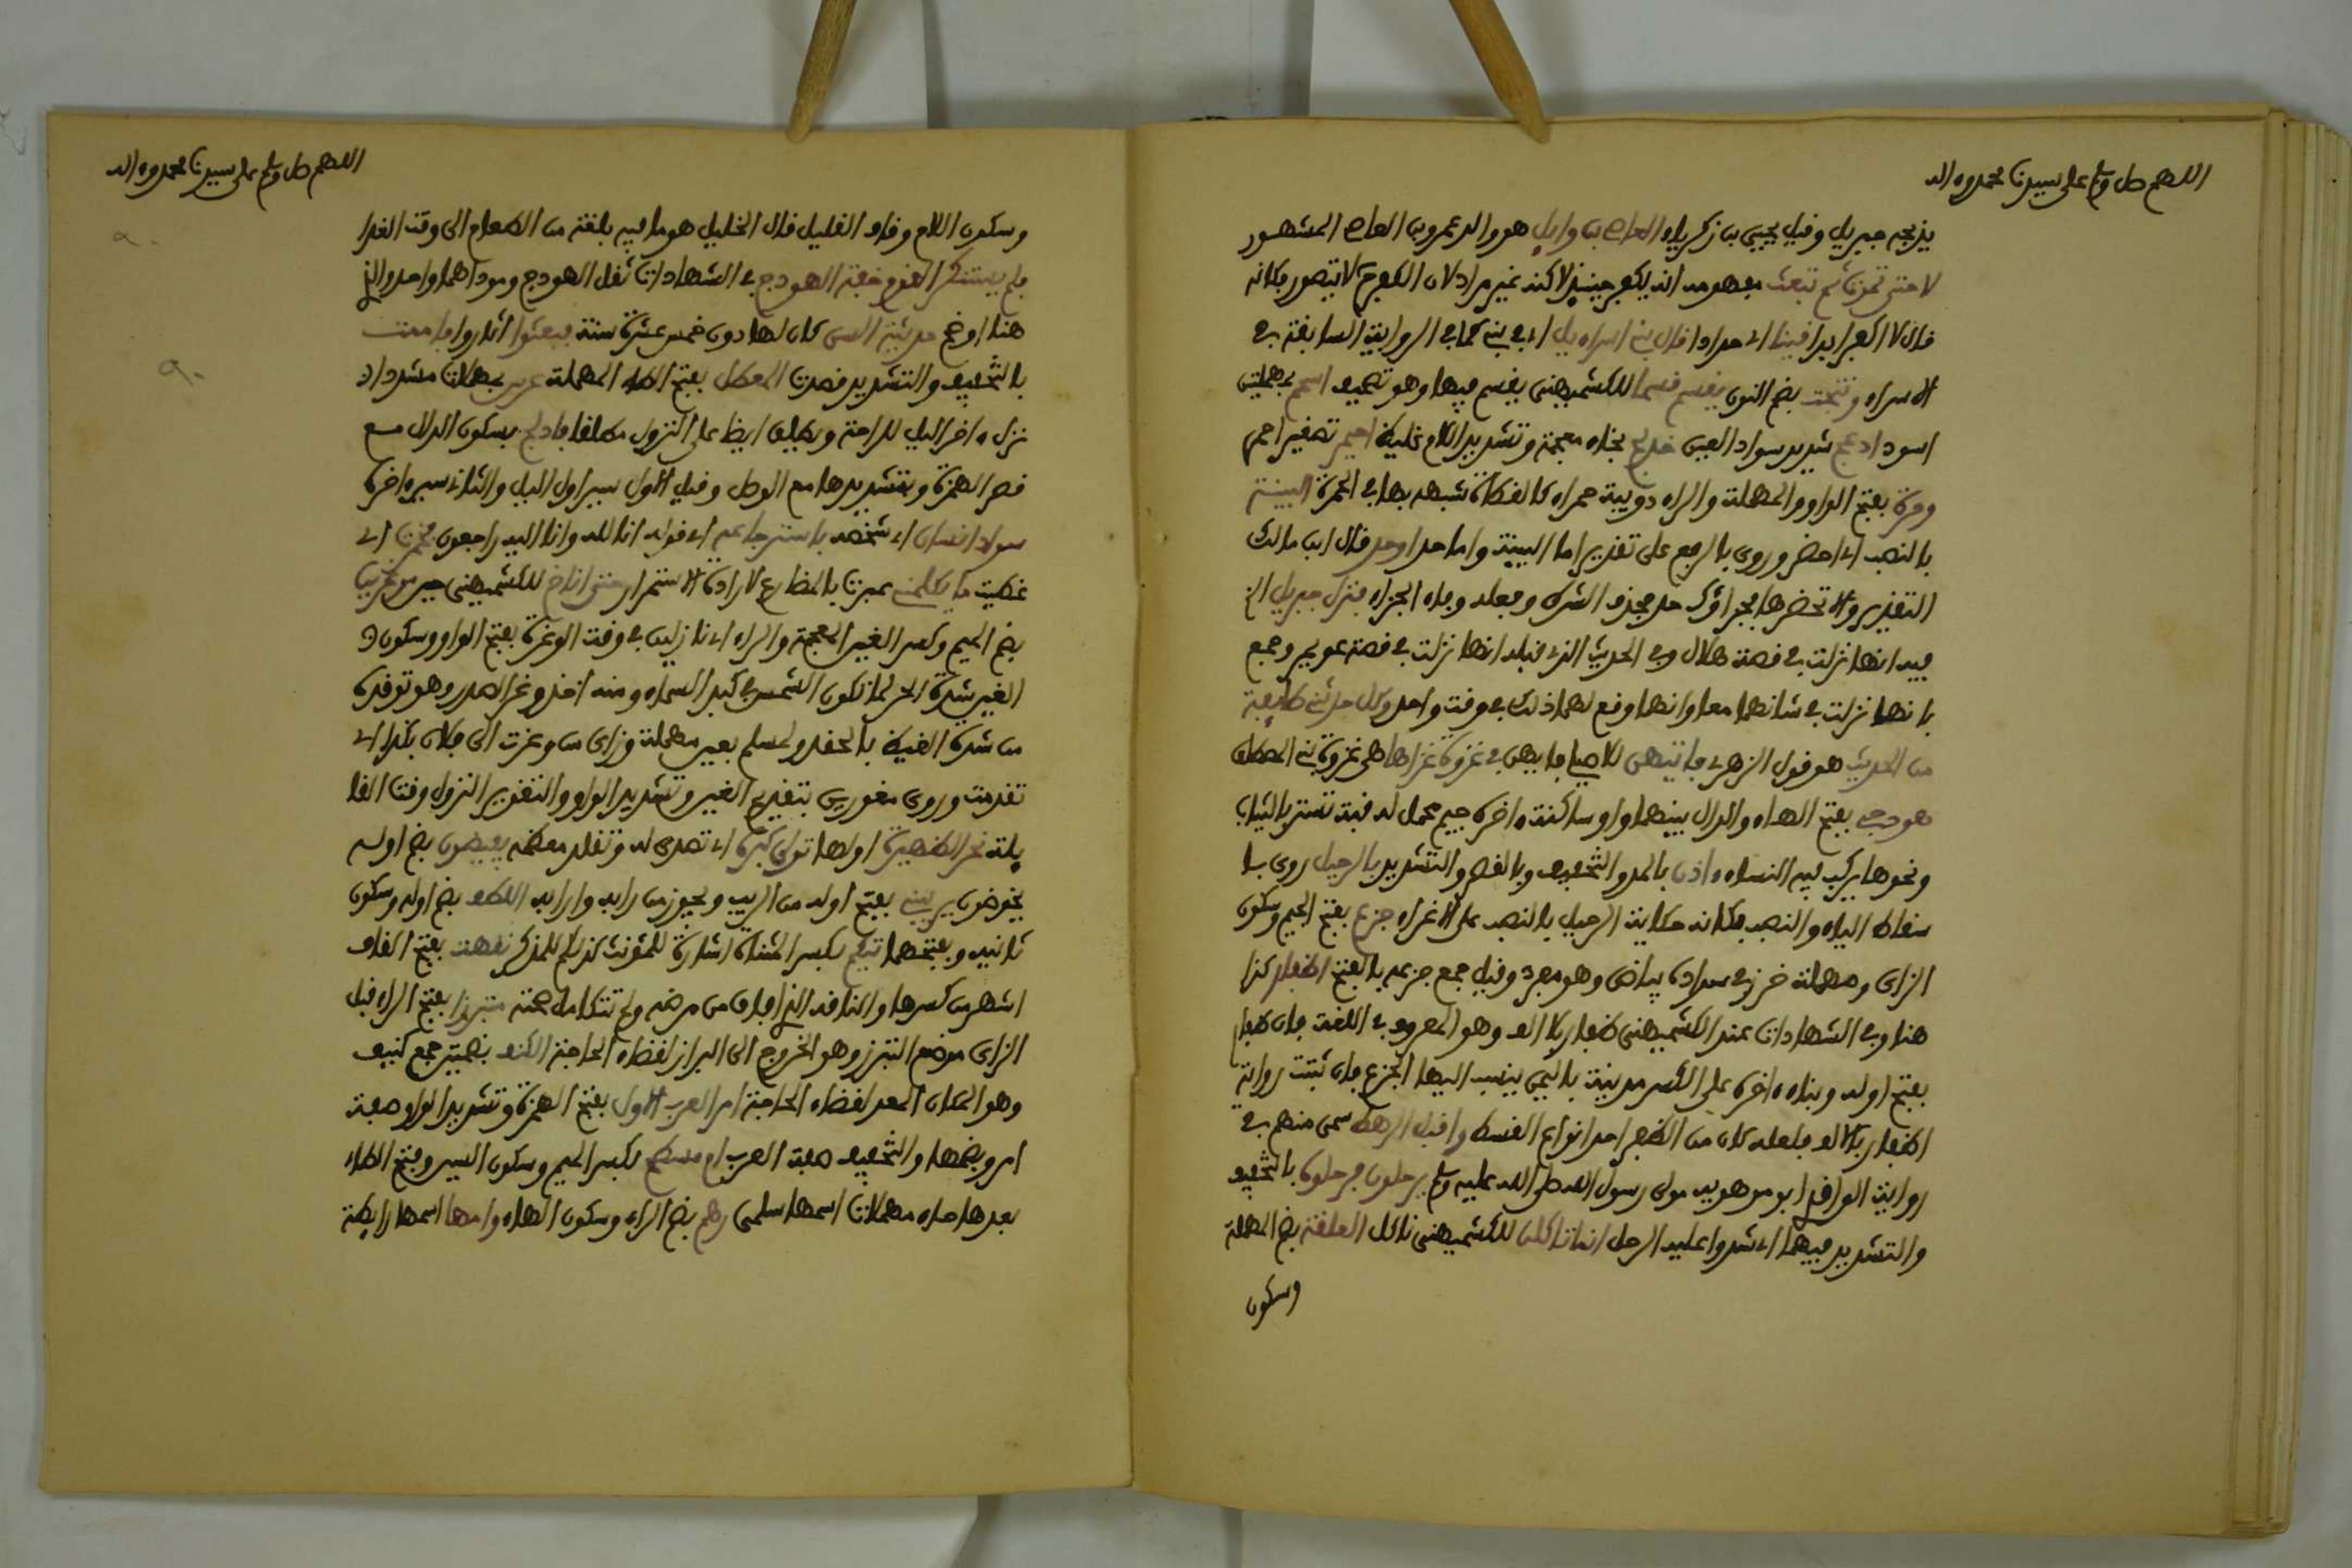 اللهم صل وسلم على سيدنا محمد وءاله
يزنيه جبريل وقيل يحيى بن زكرياء العاص بن وايل هو والد عمرو بن العاص المشهور
لا حتى تموت ثم تبعث مفهومه انه يكفر حينئذ لاكنه غير مراد لان الكفر ثم لا يتصور فكانه
قال لا اكفر ابدا فينا اي حدادا قال بني اسراءيل اي في بني كما في الرواية السابقة في
الاسراء وتجت بضم النون يقسم قسما للكشميهني يقسم فيها وهو تصحيف اسحم بمهملتين
اسود ادعج شديد سواد العين خدلج بخاء معجمة وتشديد اللام احيمر تصغير احمر
وحرة بفتح الواو والمهملة والراء دويبة حمراء كالقطاة شبهه بها في الحمرة البينة
بالنصب اي احضر وروي بالرفع على تقدير اما البينة واما حد او حد قال ابن مالك
التقدير والا تحضرها فجزاؤك حد فحذف الشرط وفعله وفاء الجزاء فنزل جبريل الخ
فيه انها نزلت في قصة هلال وفي الحديث الذي قبله انها نزلت في قصة عويمر وجمع
بانها نزلت في شانهما معا وانها وقع لهما ذلك في وقت واحد وكل حدثني طايفة
من الحديث هو قول الزهري فايتهن للاصيلي فايهن في غزوة غزاها هي غزوة بني المصطلق
هودجي بفتح الهاء والدال بينهما واو ساكنة ءاخره جيم محمل له قبة تستر بالثياب
ونحوها يركب فيه النساء ءاذن بالمد والتخفيف وبالقصر والتشديد بالرحيل روي با
سقاط الباء والنصب فكانه حكاية الرحيل بالنصب على الاغراء جزع بفتح الجيم وسكون
الزاي ومهملة خرز في سواده بياض وهو مفرد وقيل جمع جزعة بالفتح اظفار كذا
هنا وفي الشهادات عند الكشميهني ظفار بلا الف وهو المعروف في اللغة فان ظفار
بفتح اوله وبناء ءاخره على الكسر مدينة باليمن ينسب اليها الجزع فان ثبتت رواية
اظفار بالالف فلعله كان من الظفر احد انواع القسط واقبل الرهط سمي منهم في
رواية الواقدي ابو موهوبة مولى رسول الله صلى الله عليه وسلم يرحلون فرحلوه بالتخفيف
والتشديد فيهما اي شدوا عليه الرحل انما تاكلن للكشميهني ناكل العلقة بضم المهملة
وسكون
اللهم صل وسلم على سيدنا محمد وءاله
وسكون اللام وقاف القليل قال الخليل هو ما فيه بلغة من الطعام الى وقت الغداء
فلم يستنكر القوم خفة الهودج في الشهادات ثقل الهودج ومرادهما واحد والذي
هنا اوضح حديثة السن كان لها دون خمس عشرة سنة فبعثوا اثاروا فاممت
بالتخفيف والتشديد قصدت المعطل بفتح الطاء المهملة عرس بمهملات مشددا اي
نزل ءاخر الليل للراحة ويطلق ايضا على النزول مطلقا فادلج بسكون الدال مع
قصر الهمزة وبتشديدها مع الوصل وقيل الاول سير اول الليل والثاني سير ءاخره
سواد انسان اي شخصه باسترجاعه اي قوله انا لله وانا اليه راجعون فخمرت اي
غطيت ما يكلمني عبرت بالمضارع لارادة الاستمرار حتى اناخ للكشميهني حين موغرين
بضم الميم وكسر الغين المعجمة والراء اي نازلين في وقت الوغرة بفتح الواو وسكون
الغين شدة الحر لما تكون الشمس في كبد السماء ومنه اخذ وغر الصدر وهو توقده
من شدة الغيظ بالحقد ولمسلم بعين مهملة وزاي من وعزت الى فلان بكذا اي
تقدمت وروي مغورين بتقديم الغين وتشديد الواو والتغوير النزول وقت القا
يلة نحر الظهيرة اولها تولى كبره اي تصدى له وتقلد معظمه يفيضون بضم اوله
يخوضون يريبني بفتح اوله من الريب ويجوز من رابه وارابه اللطف بضم اوله وسكون
ثانيه وبفتحهما تيكم بكسر المثناة اشارة للمؤنث كذلكم للمذكر نقهت بفتح القاف
اشهر من كسرها والناقه الذي افاق من مرضه ولم تتكامل صحته متبرزا بفتح الراء قبل
الزاي موضع التبرز وهو الخروج الى البراز لقضاء الحاجة الكنف بضمتين جمع كنيف
وهو المكان المعد لقضاء الحاجة امر العرب الاول بفتح الهمزة وتشديد الواو صفة
امر وبضمها والتخفيف صفة العرب ام مسطح بكسر الميم وسكون السين وفتح الطاء
بعدها حاء مهملات اسمها سلمى رهم بضم الراء وسكون الهاء وامها اسمها رايطة